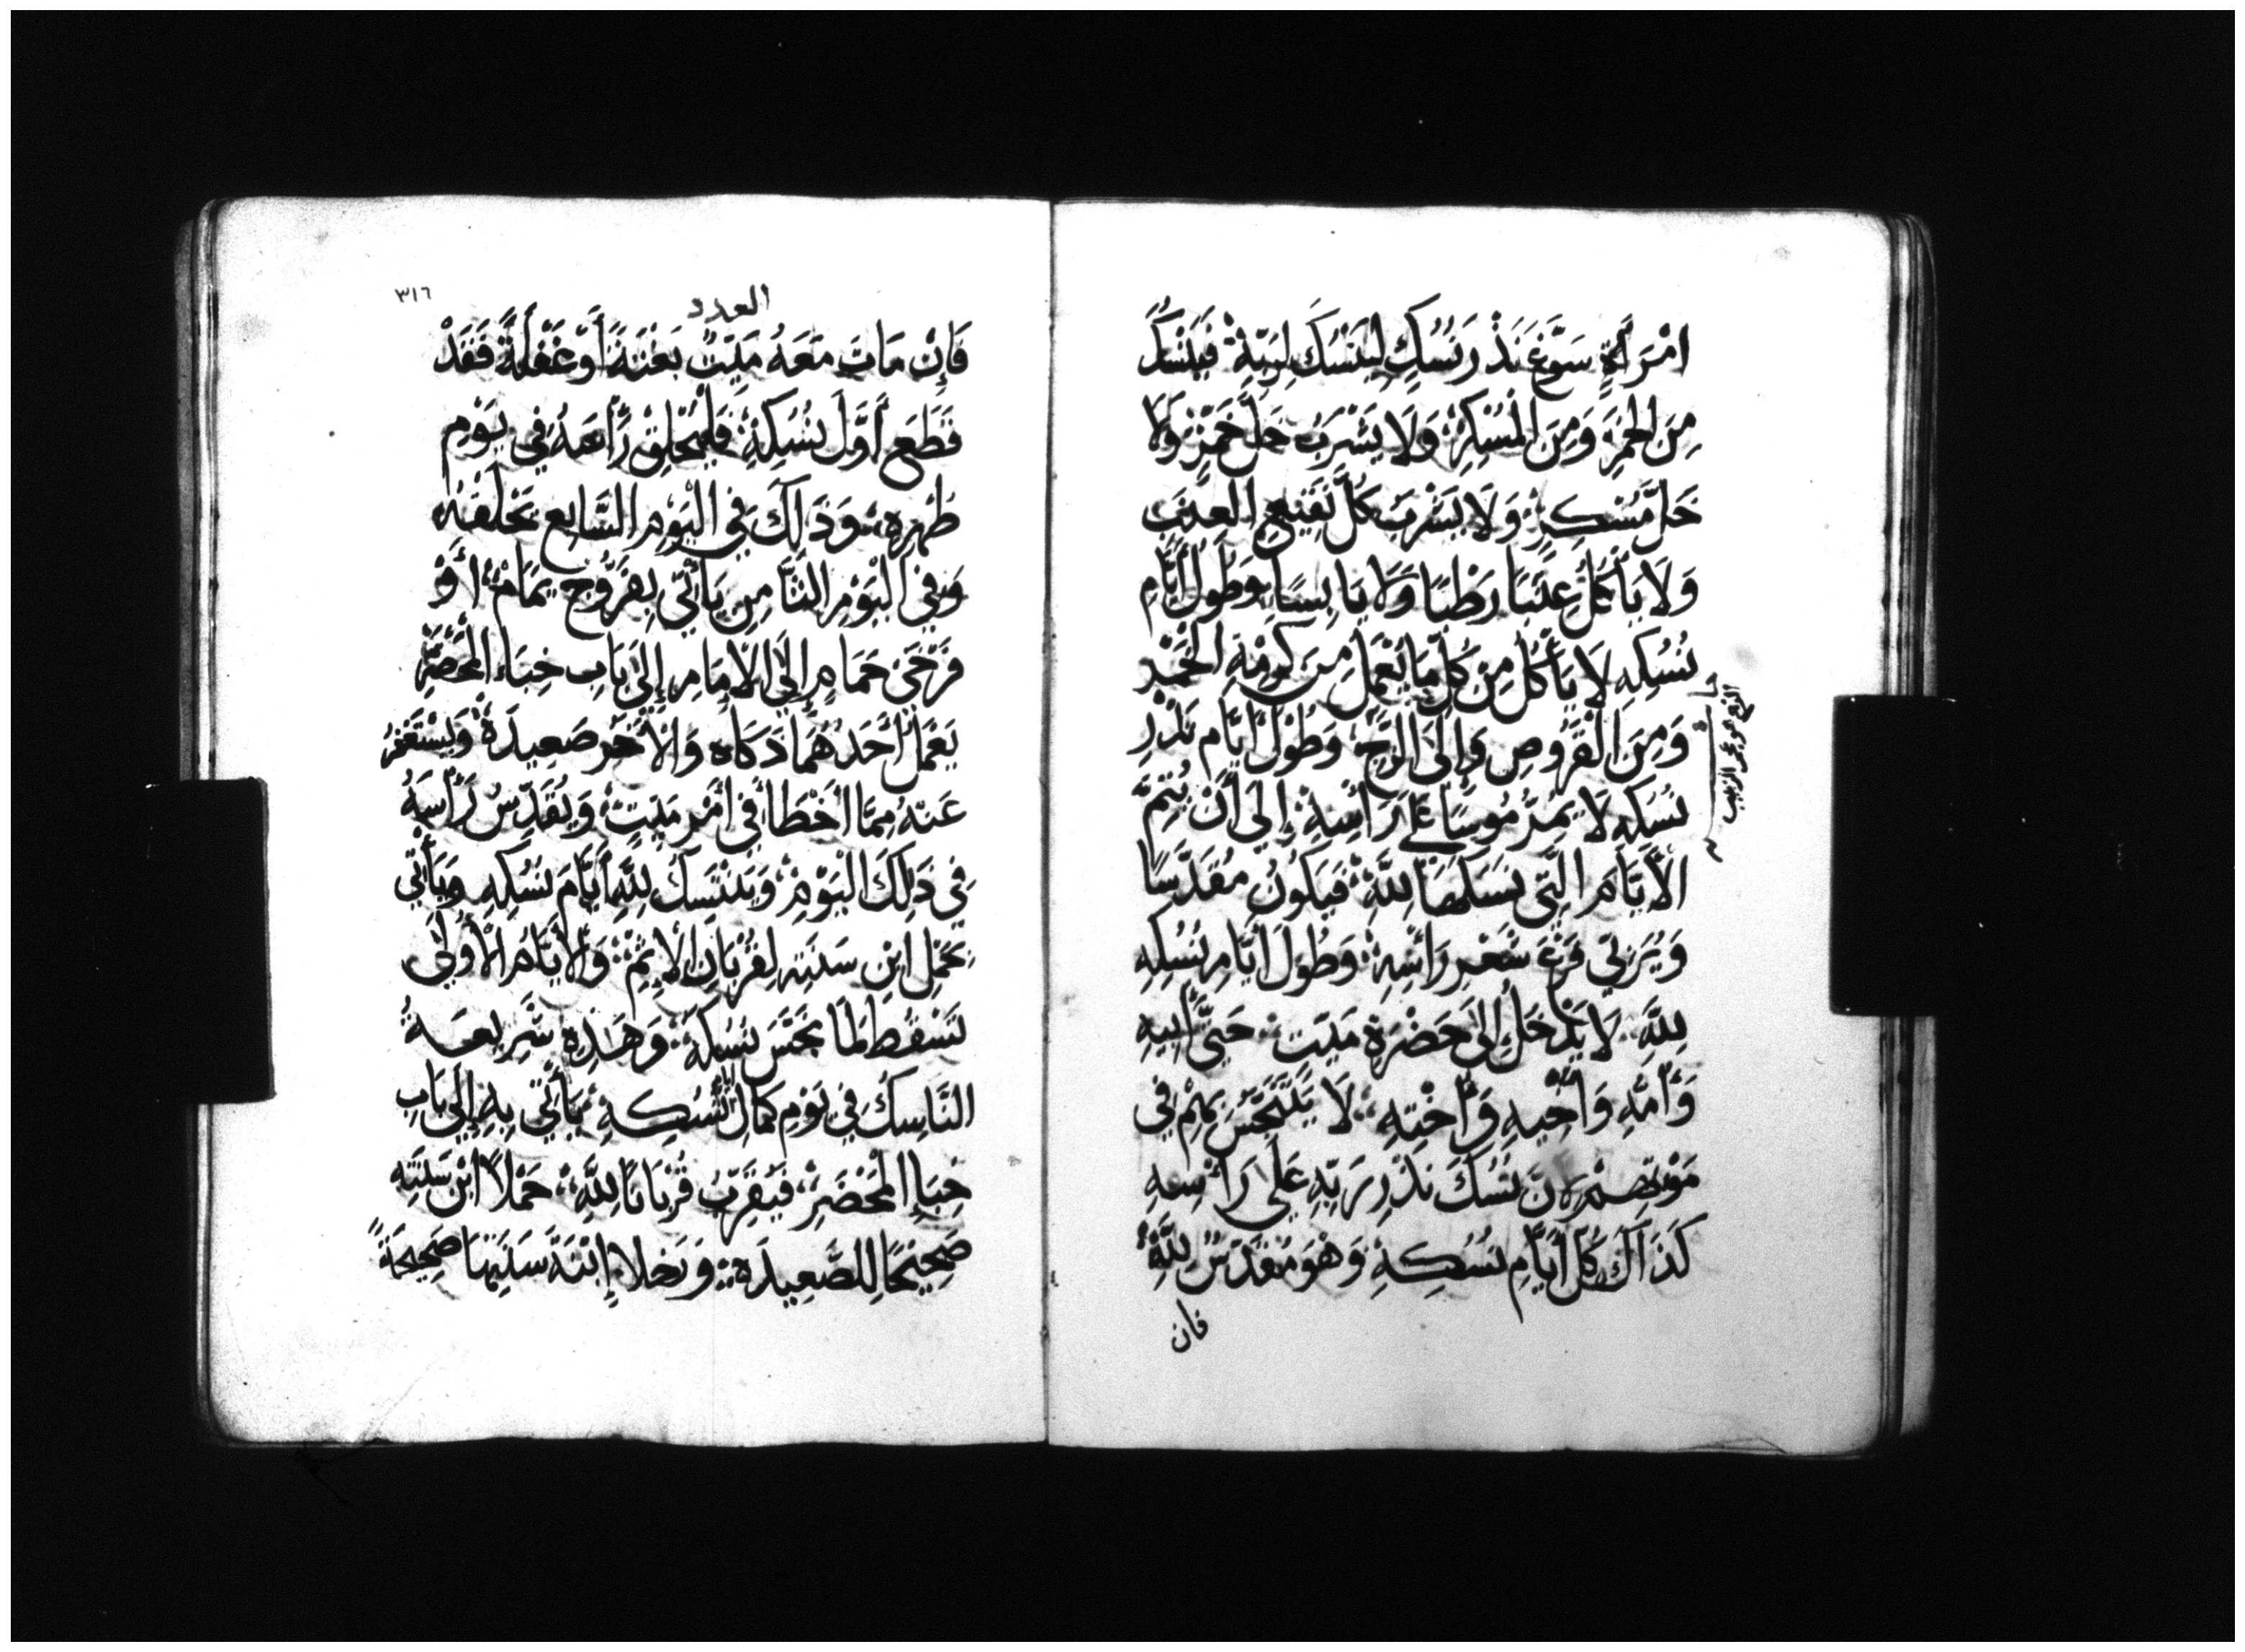 امْرَأَةٍ سَوَّغَ نَذْرَ نُسُكٍ لِيَنْسُكَ لِرَبِّهِ فَيَنْسُكُ
مِنَ الْخَمْرِ وَمِنَ الْمُسْكِرِ وَلَا يَشْرَبُ خَلَّ خَمْرٍ وَلَا
خَلَّ مُسْكِرٍ وَلَا يَشْرَبُ كُلَّ نَقِيعِ الْعِنَبِ
وَلَا يَأْكُلُ عِنَبًا رَطْبًا وَلَا يَابِسًا وَطُولَ أَيَّامِ
نُسُكِهِ لَا يَأْكُلُ مِنْ كُلِّ مَا يُعْمَلُ مِنَ كَرْمَةِ الْخَمْرِ
وَمِنَ الْقُرُوصِ وَإِلَى الزَّجِّ وَطُولَ أَيَّامِ نَذْرِ
نُسُكِهِ لَا يَمُرُّ مُوسًا عَلَى رَأْسِهِ إِلَى أَنْ تَتِمَّ
الْأَيَّامَ الَّتِي نَسَكَهَا لِلَّهِ فَيَكُونُ مُقَدَّسًا
وَيُرَبِّي فَرْعَ شَعْرِ رَأْسِهِ وَطُولَ أَيَّامِ نُسُكِهِ
لِلَّهِ لَا يَدْخُلْ إِلَى حَضْرَةِ مَيِّتٍ حَتَّى أَبِيهِ
وَأُمِّهِ وَأَخِيهِ وَأُخْتِهِ لَا يَتَنَجَّسُ بِهِمْ فِي
مَوْتِهِمْ لِأَنَّ نُسُكَ نَذْرِ رَبِّهِ عَلَى رَأْسِهِ
كَذَاكَ كُلَّ أَيَّامِ نُسُكِهِ وَهُوَ مُقَدَّسٌ لِلَّهِ
فان
العدد
٣١٦
فَإِنْ مَاتَ مَعَهُ مَيِّتٌ بَغْتَةً أَوْ غَفْلَةً فَقَدْ
قَطَعَ أَوَّلَ نُسُكِهِ فَلْيَحْلِقْ رَأْسَهُ فِي يَوْمِ
طُهْرِهِ وَذَلِكَ فِي الْيَوْمِ السَّابِعِ يَحْلِقُهُ
وَفِي الْيَوْمِ الثَّامِنِ يَأْتِي بِفَرُّوجِ يَمَامٍ أَوْ
فَرْخَيْ حَمَامٍ إِلَى الْإِمَامِ إِلَى بَابِ خِبَاءِ الْمَحْضَرِ
يَعْمَلُ أَحَدَهُمَا ذَكَاه وَالْآخَرُ صَعِيدَةً وَيَسْتَغْفِرُ
عَنْهُ مِمَّا أَخْطَأَ فِي أَمْرِ مَيِّتٍ وَيُقَدِّسُ رَأْسَهُ
فِي ذَلِكَ الْيَوْمِ وَيَتَنَسَّكُ لِلَّهِ أَيَّامَ نُسُكِهِ وَيَأْتِي
بِحَمَلِ ابْنِ سَنَتِهِ لِقُرْبَانِ الْإِثْمِ وَالْأَيَّامُ الْأُولَى
تَسْقُطُ لَمَّا نَجَّسَ نُسُكَهُ وَهَذِهِ شَرِيعَةُ
النَّاسِكِ فِي يَوْمِ كَمَالِ نُسُكِهِ يَأْتِي بِهِ إِلَى بَابِ
خِبَاءِ الْمَحْضَرِ فَيُقَرِّبُ قُرْبَانًا لِلَّهِ حَمَلًا ابْنَ سَنَتِهِ
صَحِيحًا لِلصَّعِيدَةِ وَرَخِلًا إِبْنَةَ سَنَتِهَا صَحِيحَةً